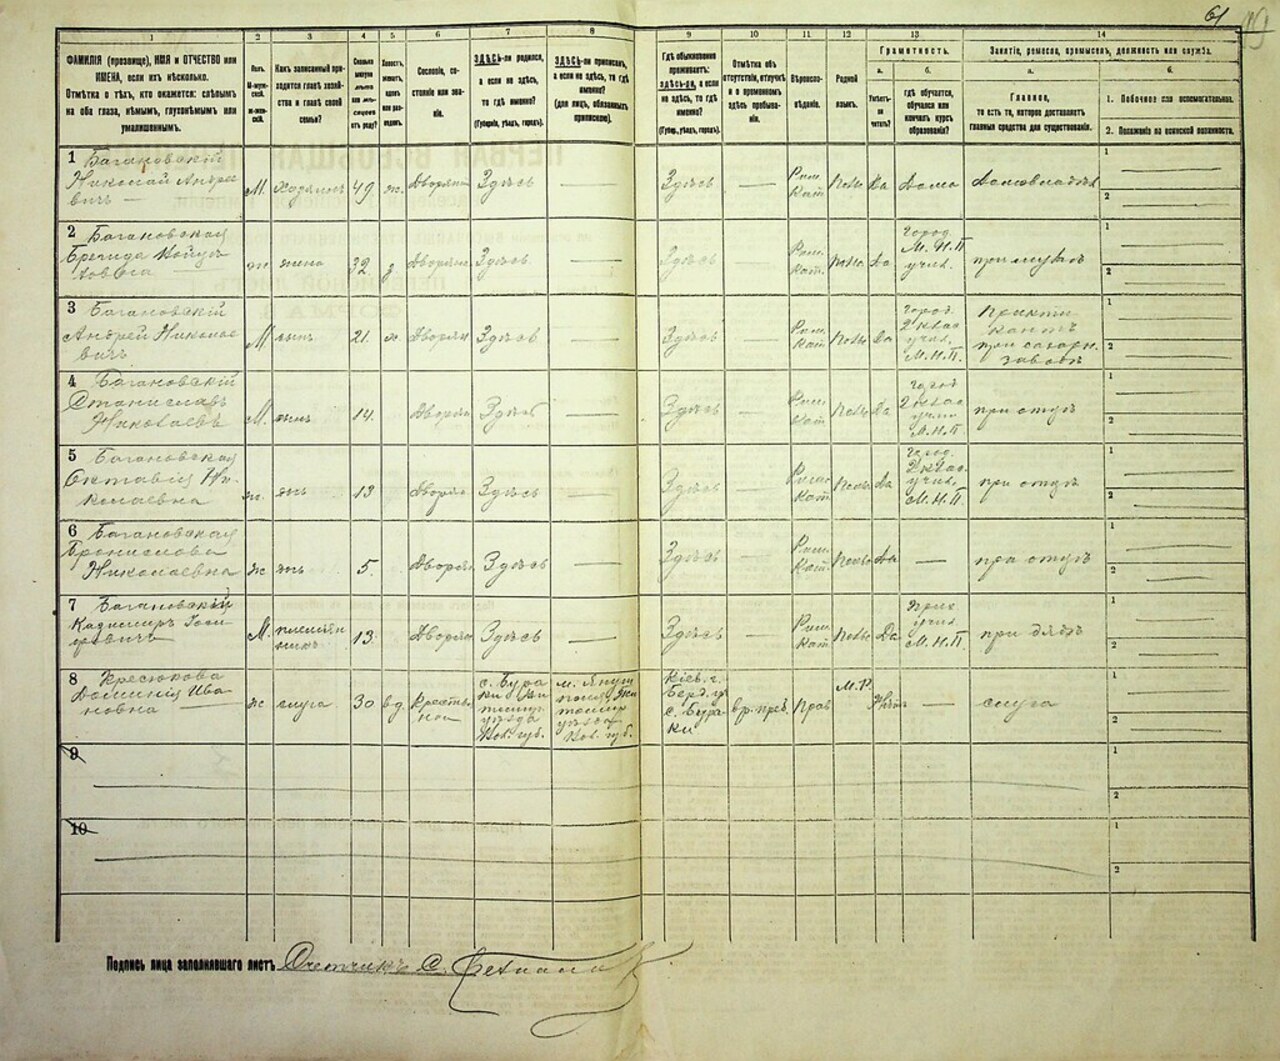 61
1 2 3 4 5 6 7 8 9 10 11 12 13 14
ФАМИЛІЯ (прозвище), ИМЯ и ОТЧЕСТВО или
ИМЕНА, если ихъ нѣсколько.
Отмѣтка о тѣхъ, кто окажется: слѣпымъ
на оба глаза, нѣмымъ, глухонѣмымъ или
умалишеннымъ.
Полъ.
М-мужской.
Ж-женскій.
Какъ записанный приходится
главѣ хозяйства
и главѣ своей
семьи?
Сословіе, состояніе
или званіе.
ЗДѢСЬ-ли родился,
а если не здѣсь,
то гдѣ именно?
(Губернія, уѣздъ, городъ).
ЗДѢСЬ-ли приписанъ,
а если не здѣсь, то гдѣ
именно?
(для лицъ, обязанныхъ
припискою).
Гдѣ обыкновенно
проживаетъ:
здѣсь-ли, а если
не здѣсь, то гдѣ
именно?
(Губерн., уѣздъ, городъ).
Отмѣтка объ
отсутствіи, отлучкѣ
и о временномъ
здѣсь пребываніи.
Вѣроисповѣданіе.
Родной
языкъ.
Грамотность.
а.
Умѣетъ-ли
читать?
б.
гдѣ обучается,
обучался или
кончилъ курсъ
образованія?
Занятіе, ремесло, промыселъ, должность или служба.
а.
Главное,
то есть то, которое доставляетъ
главныя средства для существованія.
б.
1. Побочное или вспомогательное.
2. Положеніе по воинской повинности.
1 Багановскій
Николай Андреевичъ
М. хозяинъ 49 ж. Дворянин Здѣсь — Здѣсь — Рим. Кат. Поль Да Дома Домовладѣл
2 Багановская
Бригида
ж жена 32 з Дворян Здѣсь — Здѣсь — Рим. Кат. Поль Да Город. М.Н.П. учил. при мужѣ
3 Багановскій
Андрей Николаевичъ
М сынъ 21 х Дворян Здѣсь — Здѣсь — Рим. Кат. Поль Да Город. 2 клас. учил. М.Н.П. Практикантъ при сахарн. заводѣ
4 Багановскій
Станиславъ
Николаевъ
М. сынъ 14. Дворян Здѣсь — Здѣсь — Рим. Кат. Поль Да Город 2 клас учил М.Н.П. при отцѣ
5 Багановская
Октавія Николаевна
ж. дчь 13 Дворян Здѣсь — Здѣсь — Рим. Кат. Поль Да Город. 2 клас. учил. М.Н.П. при отцѣ
6 Багановская
Бронислова
Николаевна
ж дчь 5. Дворян Здѣсь — Здѣсь — Рим. Кат. Поль Да — при отцѣ
7 Багановскій
Казимиръ
М. племянникъ 13. Дворян Здѣсь — Здѣсь — Рим. Кат. Поль Да Прих учил. М.Н.П. при дядѣ
8 Кресюкова
Доминія Ивановна
ж слуга 30 вд. Крестьянка с. Бураки уѣзда губ. уѣзда губ. Кіев. г. Берд. у. с. Бураки вр. преб. Прав М.Р. Нѣтъ — слуга
9
10
Подпись лица заполнявшаго листъ Счетчикъ С.